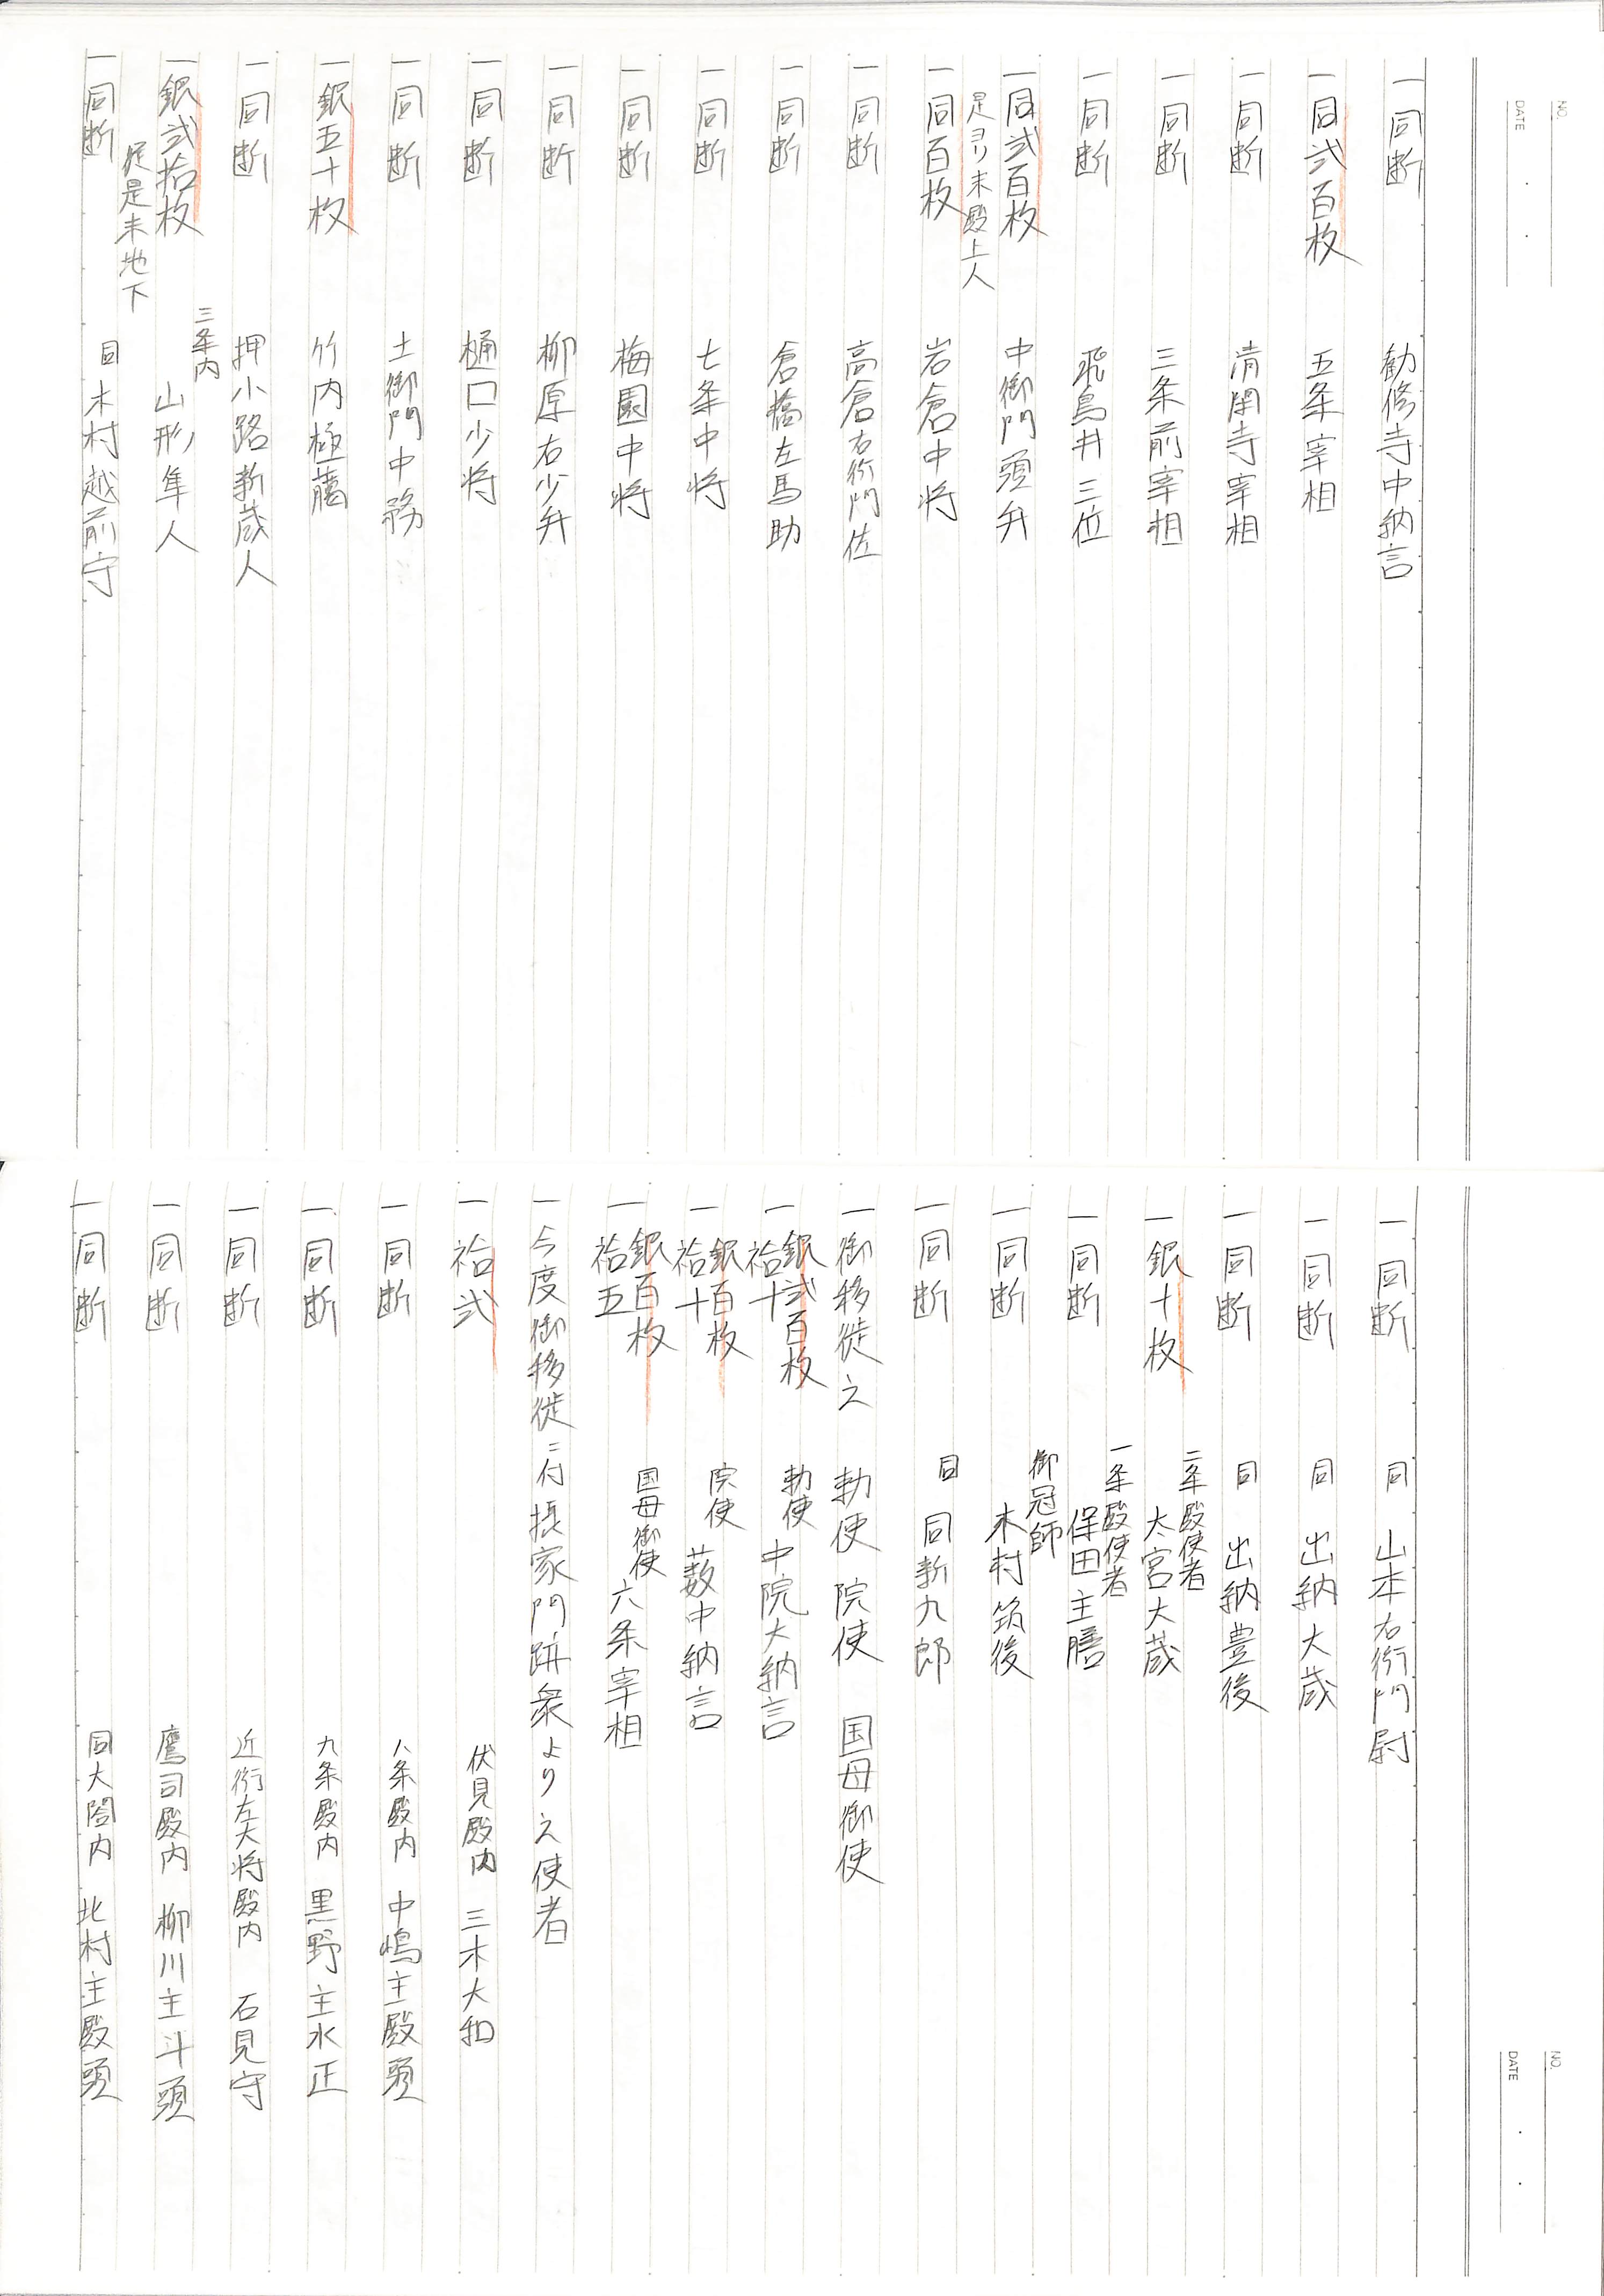 NO.
DATE
一同断 勧修寺中納言
一同弐百枚 五条宰相
一同断 清閑寺宰相
一同断 三条前宰相
一同断 飛鳥井三位
一同弐百枚 中御門頭弁
是ヨリ末殿上人
一同百枚 岩倉中将
一同断 高倉右衛門佐
一同断 倉橋左馬助
一同断 七条中将
一同断 梅園中将
一同断 柳原右少弁
一同断 樋口少将
一同断 土御門中務
一銀五十枚 竹内極﨟
一同断 押小路新蔵人
三条内
一銀弐拾枚 山形隼人
従是末地下
一同断 同 木村越前守
NO.
DATE
一同断 同 山本右衛門尉
一同断 同 出納大蔵
一同断 同 出納豊後
二条殿使者
一銀十枚 大宮大蔵
一条殿使者
一同断 保田主膳
御冠師
一同断 木村筑後
一同断 同 同新九郎
一御移徙之 勅使 院使 国母御使
一銀弐百枚 袷十 勅使 中院大納言
一銀百枚 袷十 院使 薮中納言
一銀百枚 袷五 国母御使 六条宰相
一今度御移徙ニ付摂家門跡衆より之使者
一袷弐 伏見殿内 三木大和
一同断 八条殿内 中嶋主殿頭
一同断 九条殿内 黒野主水正
一同断 近衛左大将殿内 石見守
一同断 鷹司殿内 柳川主斗頭
一同断 同大閤内 北村主殿頭